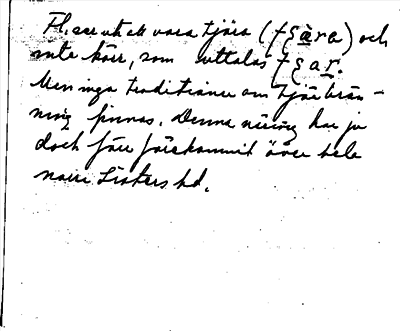 Fl. ser ut att vara tjära (tʃära) och
inte kärr, som uttalas tʃar.
Men inga traditioner om tjärbrän-
ning finnas. Denna näring har ju
dock förr förekommit över hela
norra hd.